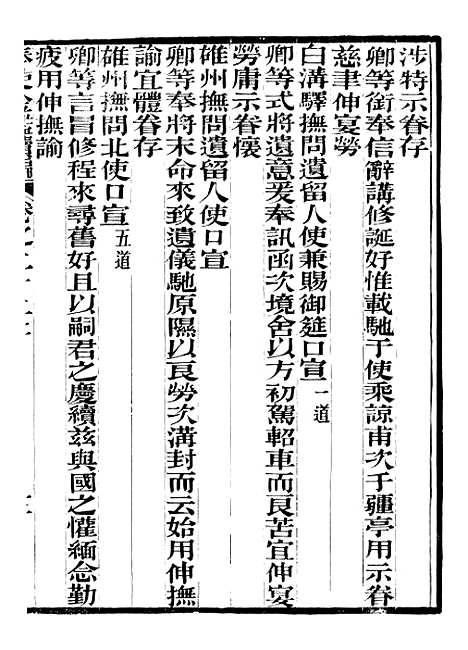 涉特示眷存
卿等銜奉信辭講修誕好惟載馳于使乘諒甫次于疆亭用示眷
慈聿伸宴勞
白溝驛撫問遺留人使兼賜御筵口宣一道
卿等式將遺意爰奉訊函次境舍以方初駕軺車而良苦宜伸宴
勞庸示眷懷
雄州撫問遺留人使口宣
卿等奉將末命來致遺儀馳原隰以良勞次溝封而云始用伸撫
諭宜體眷存
雄州撫問北使口宣五道
卿等言冒修程來尋舊好且以嗣君之慶續茲與國之懽緬念勤
疲用伸撫諭
奉使金鑑續編